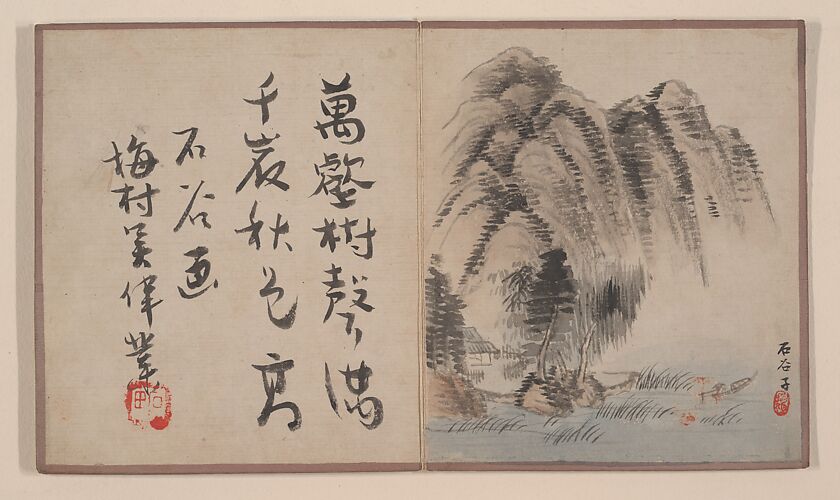 萬壑樹聲滿
千岩秋色高
石谷画
梅村吳偉業
石谷子